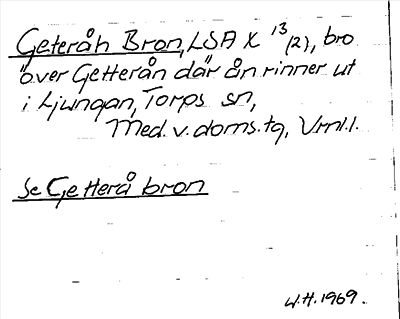 Geteråh Bron, LSA X 13/(2), bro
över Getterån där ån rinner ut
i Ljungan, Torps sn,
Med. v. doms. tg, Vrnl.l.
Se Getterå bron
W.H. 1969.